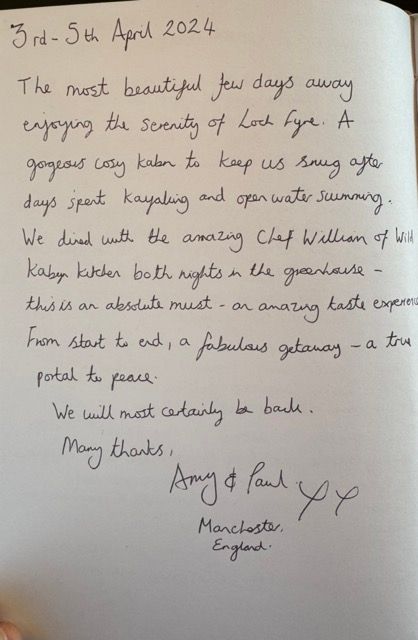 3rd - 5th April 2024
The most beautiful few days away
enjoying the serenity of Loch Fyne. A
gorgeous cosy kabn to keep us snug after
days spent kayaking and open water swimming.
We dined with the amazing Chef William of Wild
Kabyn kitchen both nights in the greenhouse -
this is an absolute must - an amazing taste experienc
From start to end, a fabulous getaway - a true
portal to peace.
We will most certainly be back.
Many thanks,
Amy & Paul. XX
Manchester,
England.